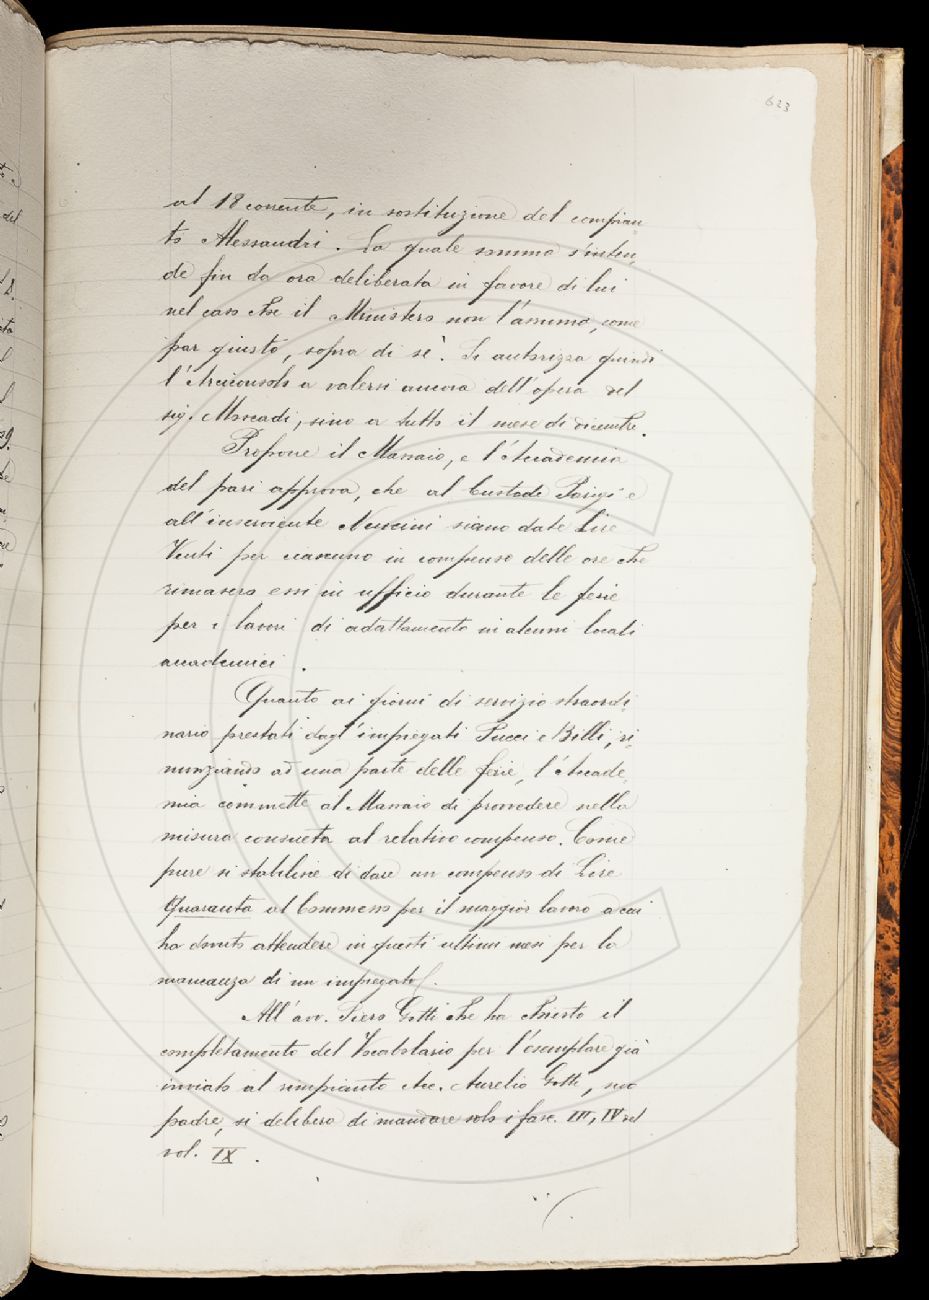 623
al 18 corrente, in sostituzione del compian
to Alessandri. La quale somma s'inten
de fin da ora deliberata in favore di lui
nel caso che il Ministero non l'assuma, come
par giusto, sopra di sè. Si autorizza quindi
l'Arciconsolo a valersi ancora dell'opera del
sig. Moscadi, sino a tutto il mese di dicembre.
Propone il Massaio, e l'Accademia
del pari approva, che al Custode Parigi e
all'inserviente Nuncini siano date Lire
Venti per ciascuno in compenso delle ore che
rimasero essi in ufficio durante le ferie
per i lavori di adattamento in alcuni locali
accademici.
Quanto ai giorni di servizio straordi
nario prestati dagl'impiegati Pucci e Billi, ri
nunziando ad una parte delle ferie, l'Accade
mia commette al Massaio di provvedere nella
misura consueta al relativo compenso. Come
pure si stabilisce di dare un compenso di Lire
Quaranta al Commesso per il maggior lavoro a cui
ha dovuto attendere in questi ultimi mesi per la
mancanza di un impiegato.
All'avv. Piero Gotti che ha chiesto il
completamento del Vocabolario per l'esemplare già
inviato al rimpianto Acc. Aurelio Gotti, suo
padre, si delibera di mandare solo i fasc. III, IV del
vol. IX.